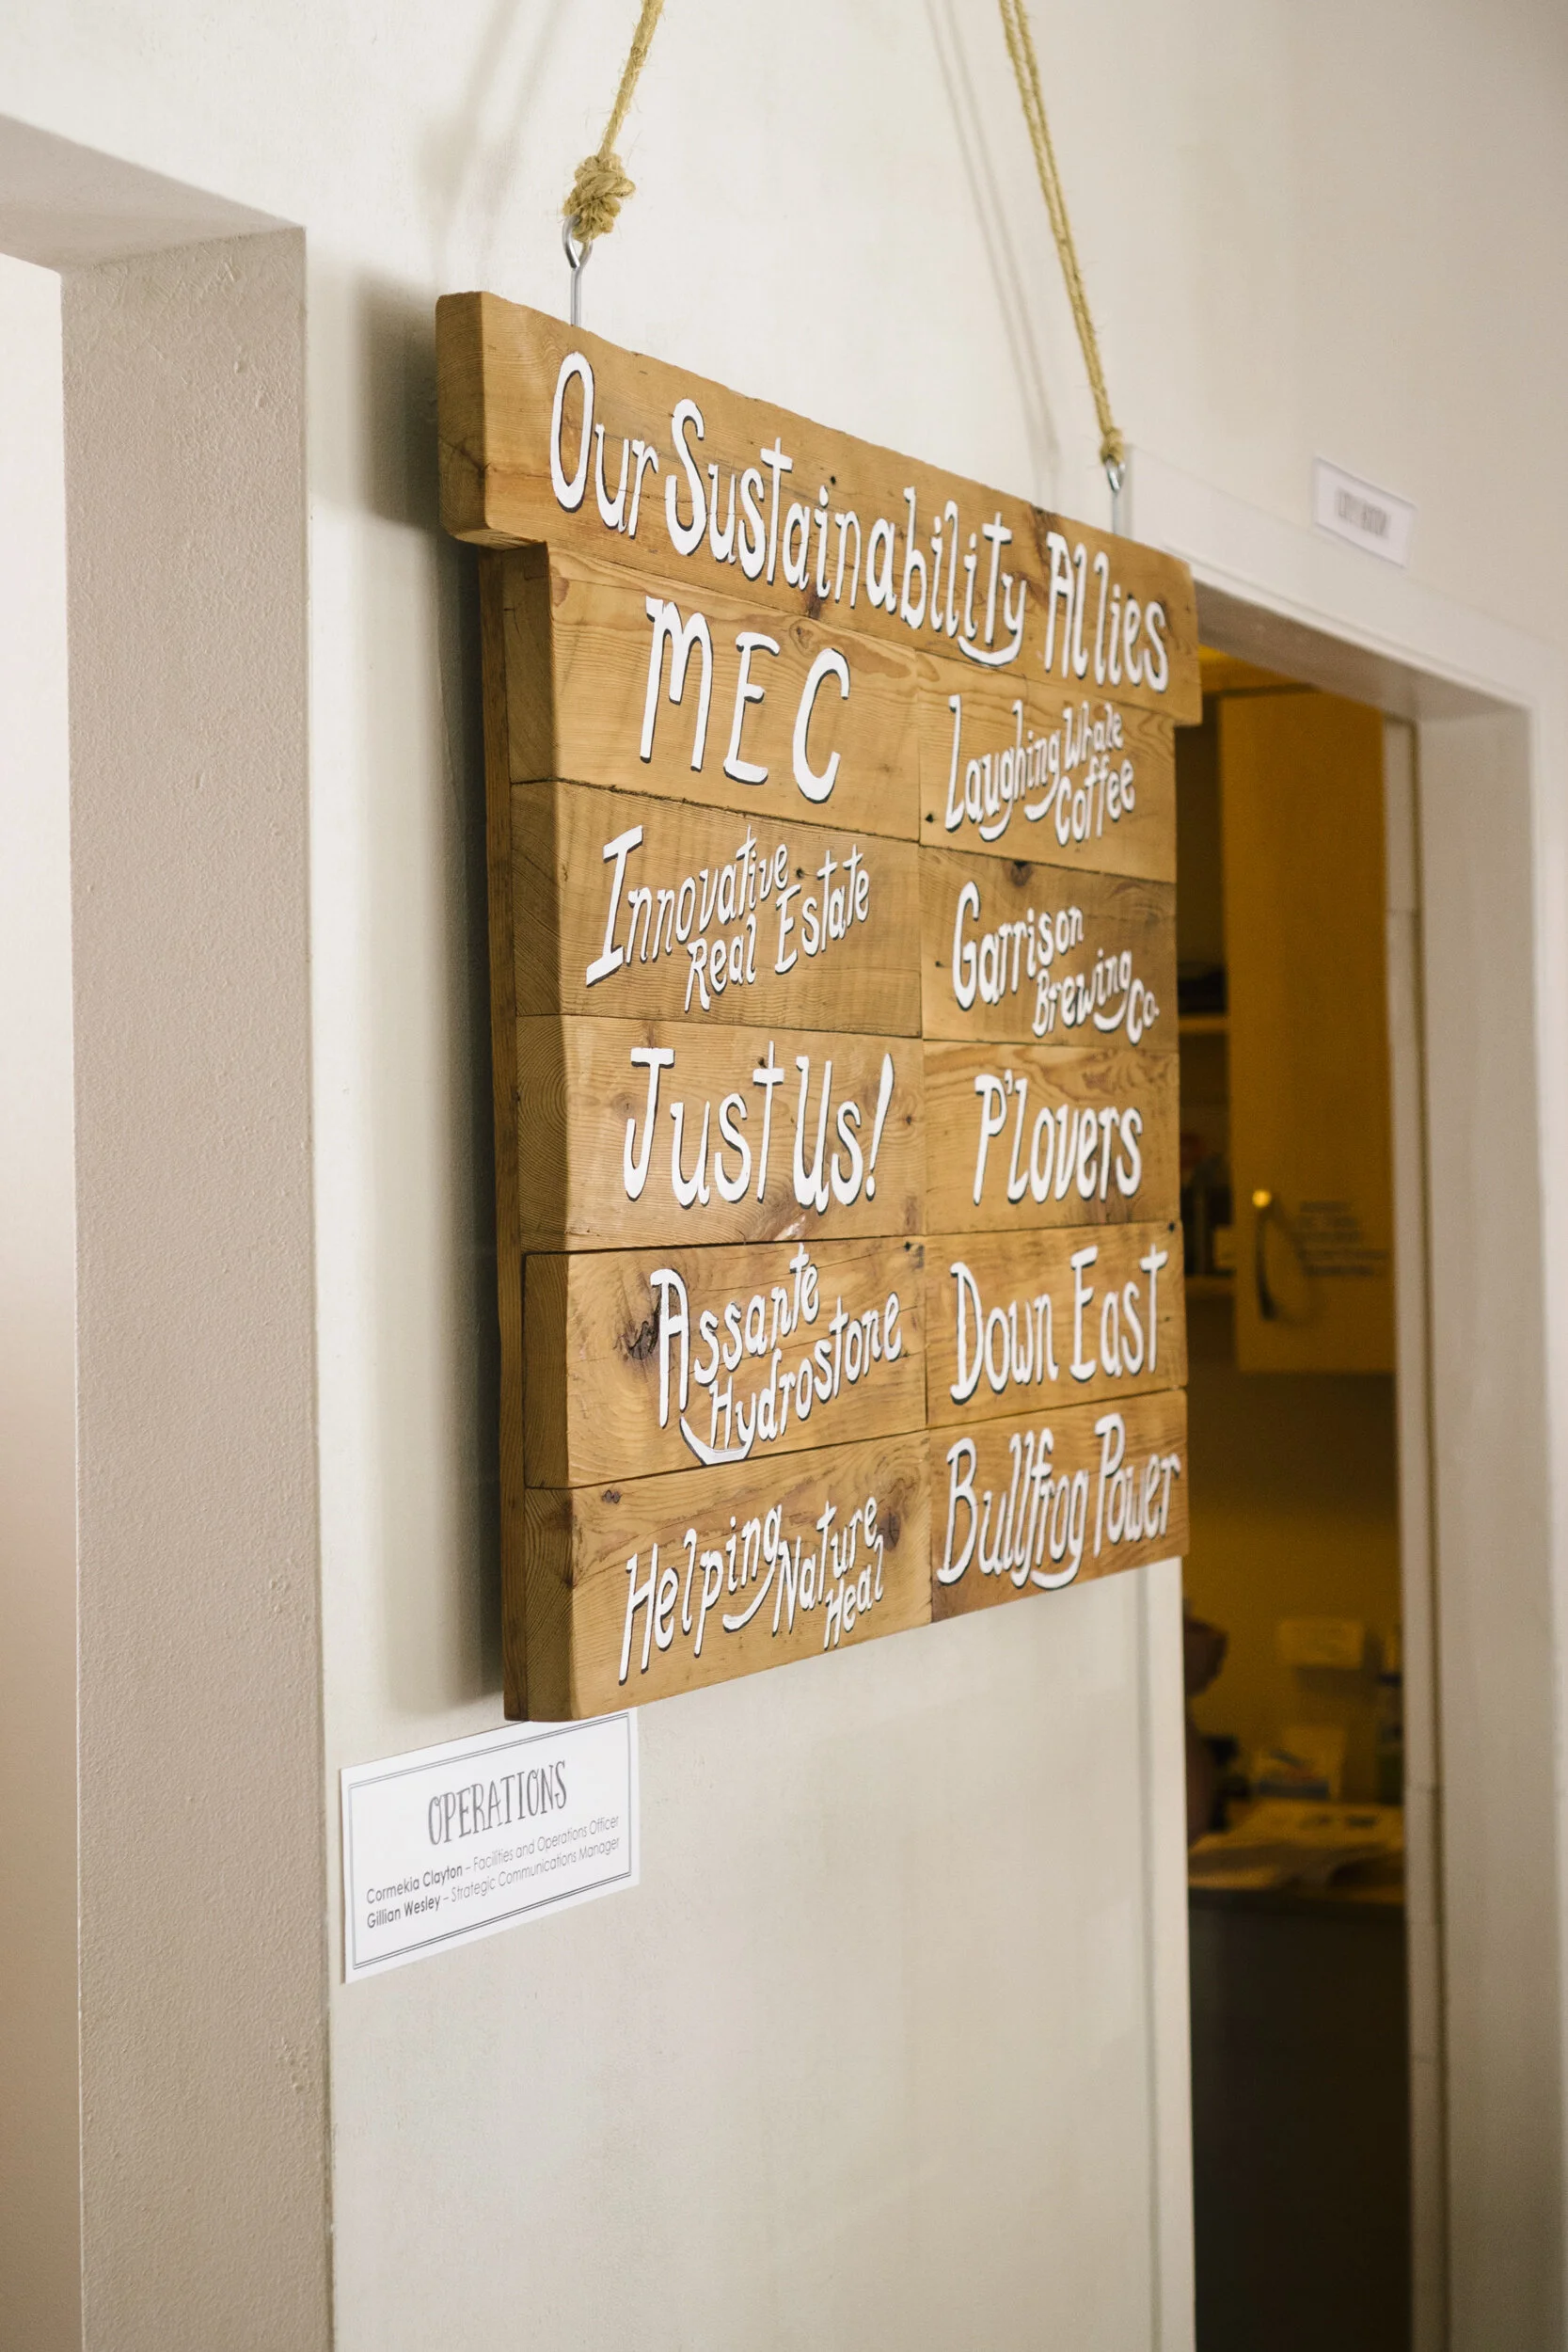 Our Sustainability Allies
MEC
Laughing Whale
Coffee
Innovative
Real Estate
Garrison
Brewing Co.
Just Us!
P'lovers
Assante
Hydrostone
Down East
Helping Nature
Heal
Bullfrog Power
OPERATIONS
Cormekia Clayton – Facilities and Operations Officer
Gillian Wesley – Strategic Communications Manager